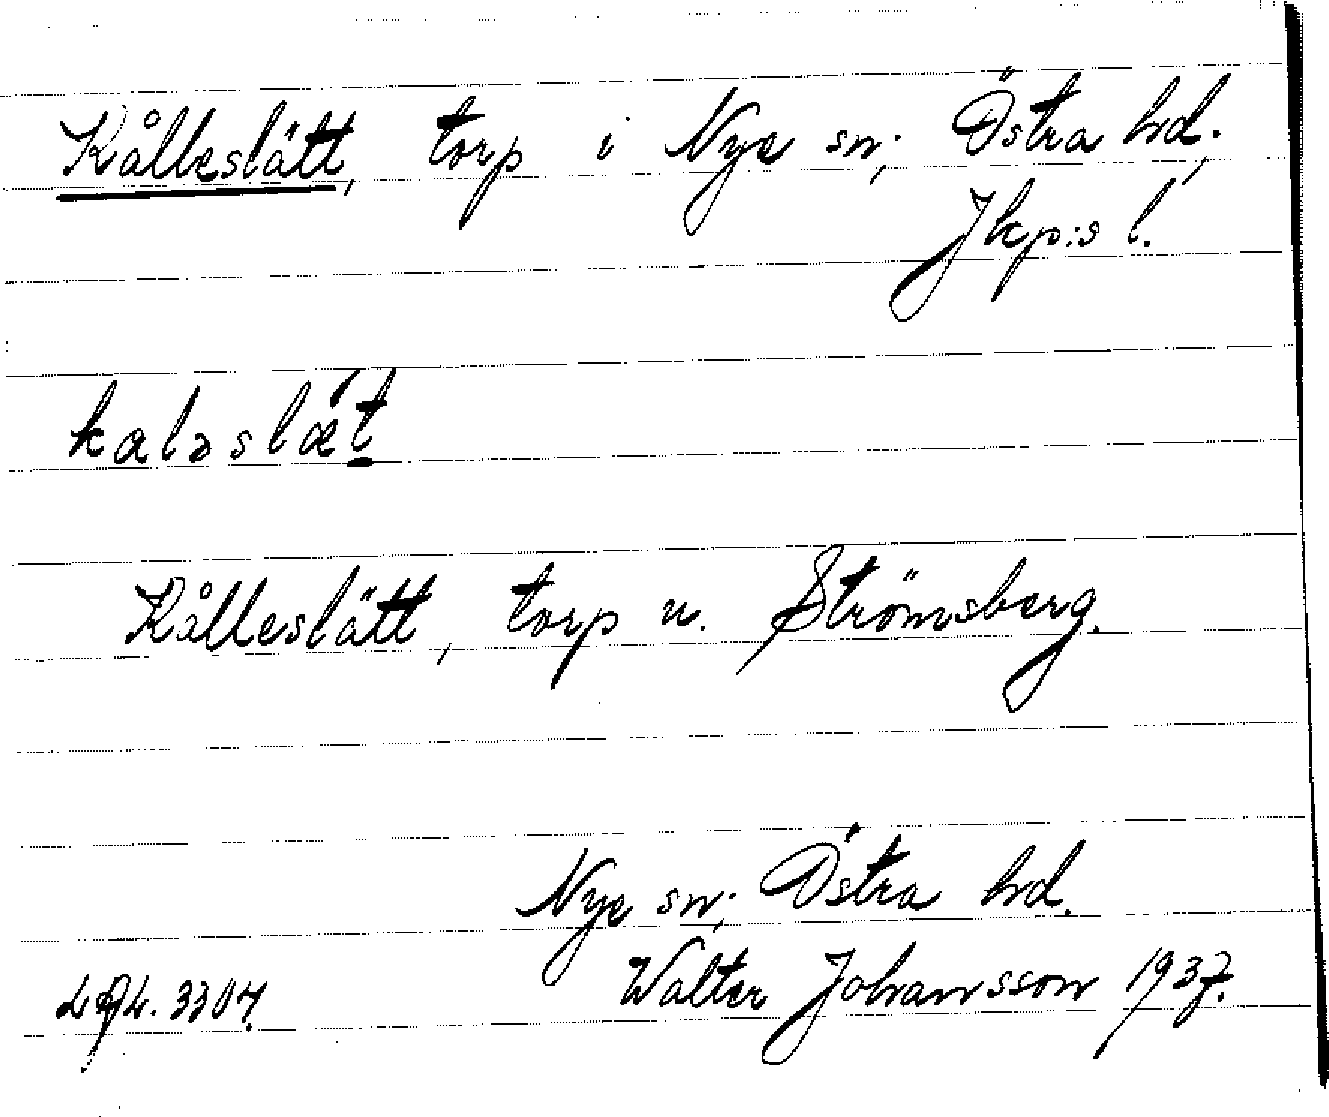 Kålleslätt, torp i Nye sn; Östra hd.,
Jkp:s l.
kaləslæ´t
Kålleslätt, torp u. Strömsberg.
Nye sn; Östra hd.
Walter Johansson 1937.
3307.